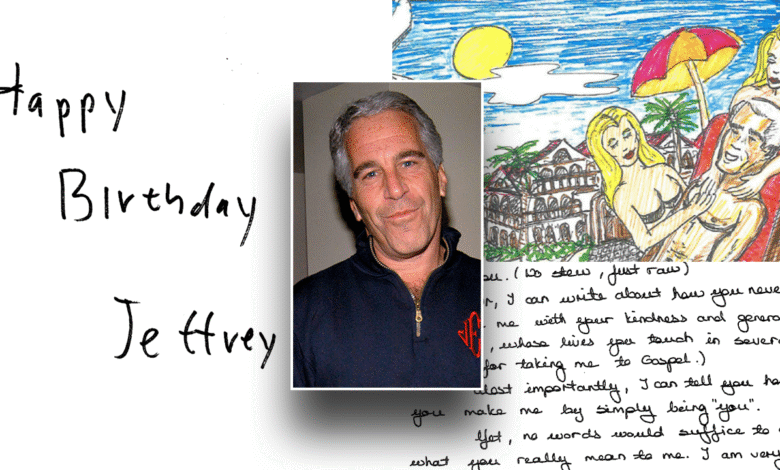 Happy
Birthday
Jeffrey
(No stew, just raw)
I can write about how you never
me with your kindness and
whose lives you touch in
for taking me to Gospel.)
importantly, I can tell you
you make me by simply being "you".
Yet, no words would suffice to
what you really mean to me. I am very